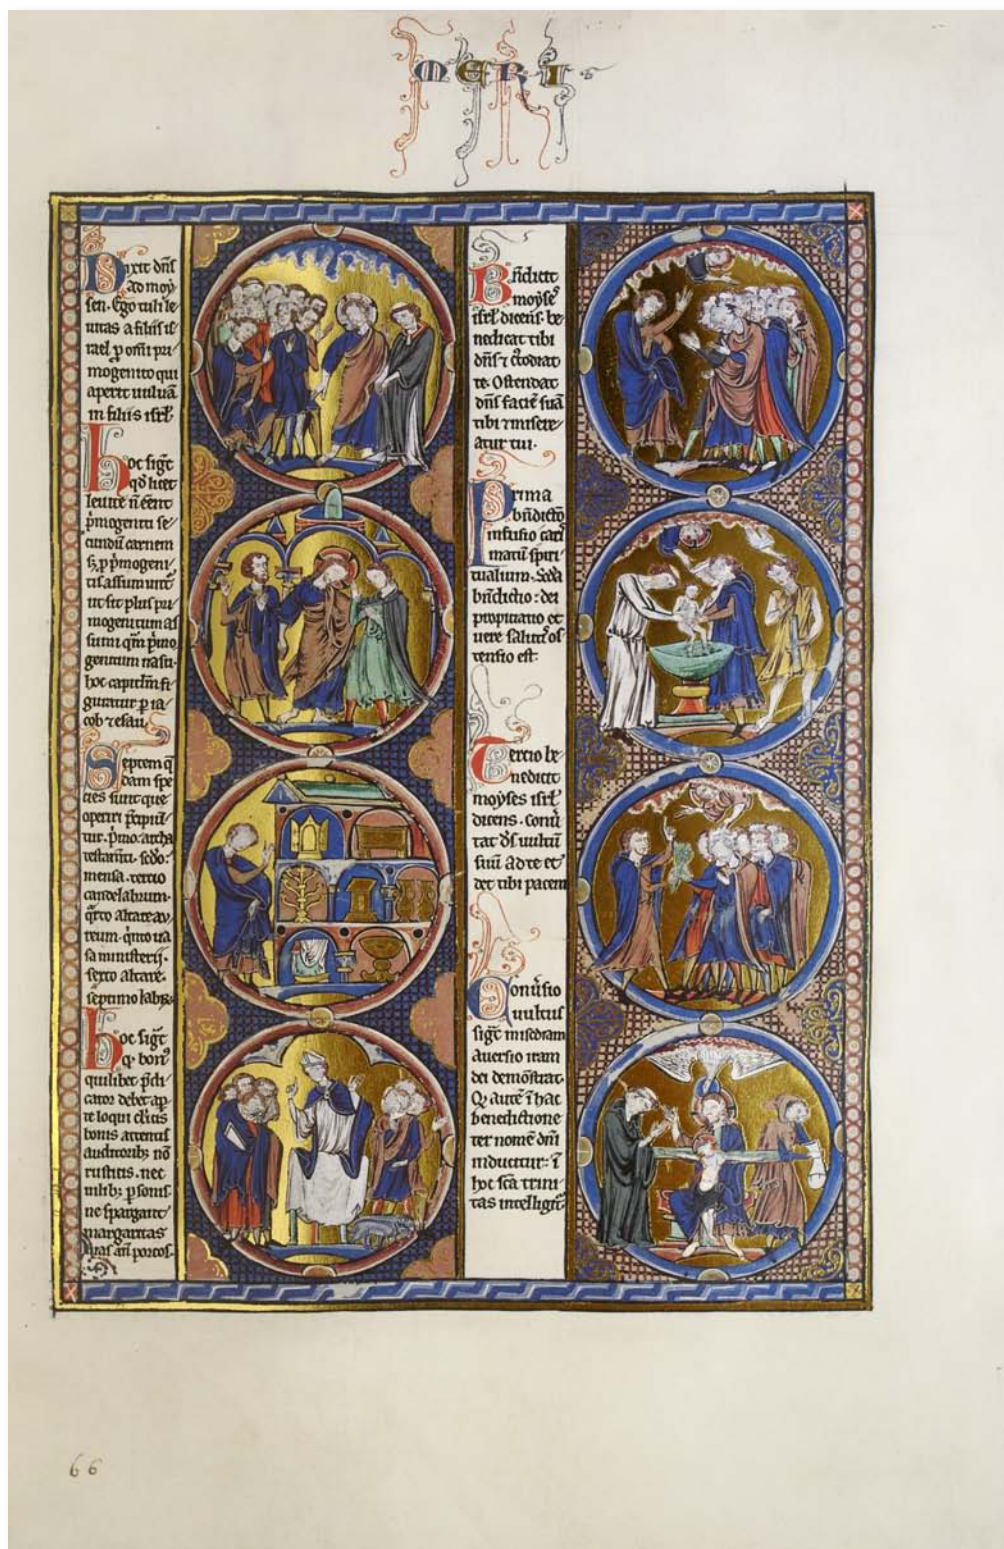 MERI
Dixit dn̄s
ad moy
sen. Ego tuli le
uitas a filiis is
rael p̱ om̄i pri
mogenito qui
aperit uuluā
in filiis isr̄l.
hoc siḡt
qđ licet
leuite n̄ eēnt
p̄mogeniti se
cundū carnem
p̱ p̄mogeni
tis assumunt̄
ut sit plus pri
mogenitum as
sumi q̄m p̄mo
genitum nasci.
hoc capitl̄m fi
guratur p̱ ia
cob ⁊ esau
Septem q̄
dam spe
cies sunt que
operiri p̄cipiū
tur. p̄mo archa
testam̄ti. sc̄do.
mensa. tercio
candelabrum.
q̄rto altare au
reum. q̄nto ua
sa ministerij.
sexto altare.
septimo labr̄.
hoc siḡt
q̇ bon⁹
quilibet p̄di
cator debet ap̱
te loqui
bonis attentis
auditorib; nō
rusticis. nec
uilib; p̱sonis.
ne spargant
margaritas
suas an̄ porcos.
Bn̄dicit
moyses
isr̄l dicens. be
nedicat tibi
dn̄s ⁊ c̄todiat
te. Ostendat
dn̄s faciē suā
tibi ⁊ misere
atur tui.
Prima
bn̄dictō
infusio cari
smatū spiri
tualium. Sc̄da
bn̄dictio: dei
propitiatio et
uere salut̄ os
tensio est.
Tercio be
nedicit
moyses isr̄l
dicens. conū
tat dn̄s uultū
suū ad te et
det tibi pacem
Conūsio
uultus
siḡt mi͞sc̄diam
auersio iram
dei demōstrat.
Q̇ autē ī hac
benedictione
ter nomē dn̄i
inducitur: ī
hoc sc̄a trini
tas intelligit̄.
66